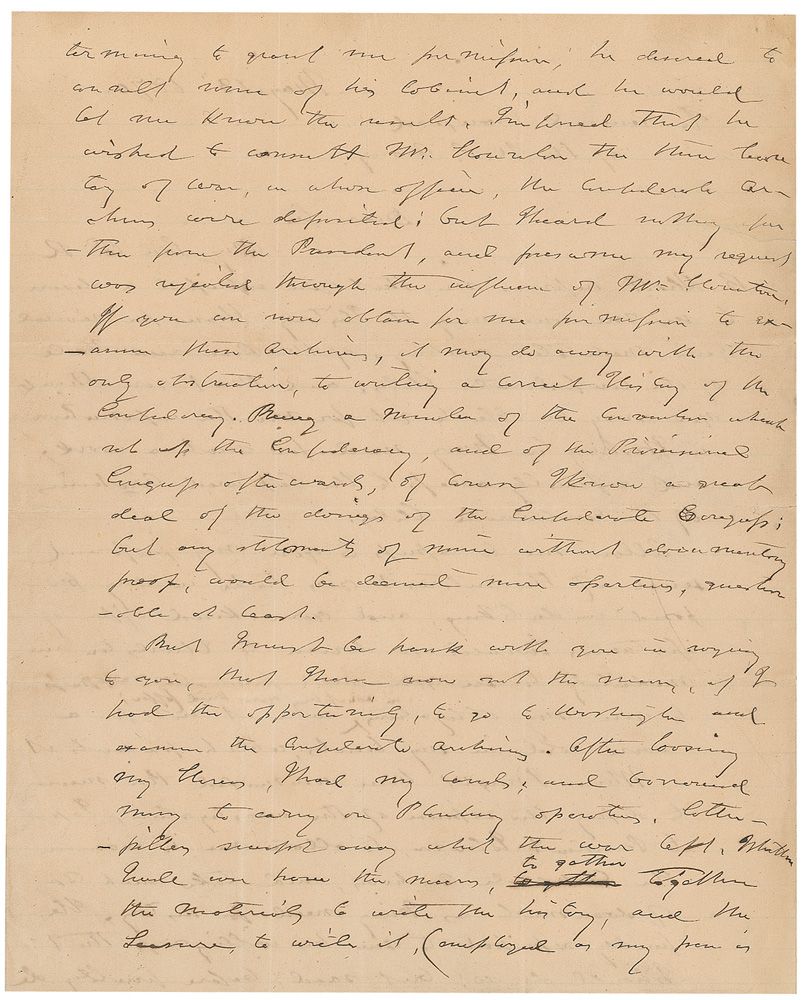 termining to grant me permission, he desired to
consult some of his Cabinet, and he would
let me know the result. I infered that he
wished to consult Mr. the then Secre
tary of war, in whose office, the Confederate Ar-
chives were deposited; but I heard nothing fur
-ther from the President, and presume my request
was rejected through the influence of Mr.
If you can now obtain for me permission to ex-
-amine these Archives, it may do away with the
only obstruction, to writing a correct History of the
Confederacy. Being a member of the Convention which
set up the Confederacy, and of the Provisional
Congress afterwards, of course I know a great
deal of the doings of the Confederate Congress;
but any statements of mine without documentary
proof, would be deemed mere assertions, question
-able at least.
But I must be frank with you in saying
to you, that I have now not the means, if I
had the opportunity, to go to Washington and
examine the Confederate Archives. After loosing
my Slaves, I had my lands, and borrowed
money to carry on Planting operations. Catter-
-pillers swept away what the war left. Whether
I will ever have the means, to gather together
the materials to write the history, and the
Leasure, to write it, (employed as my pen is